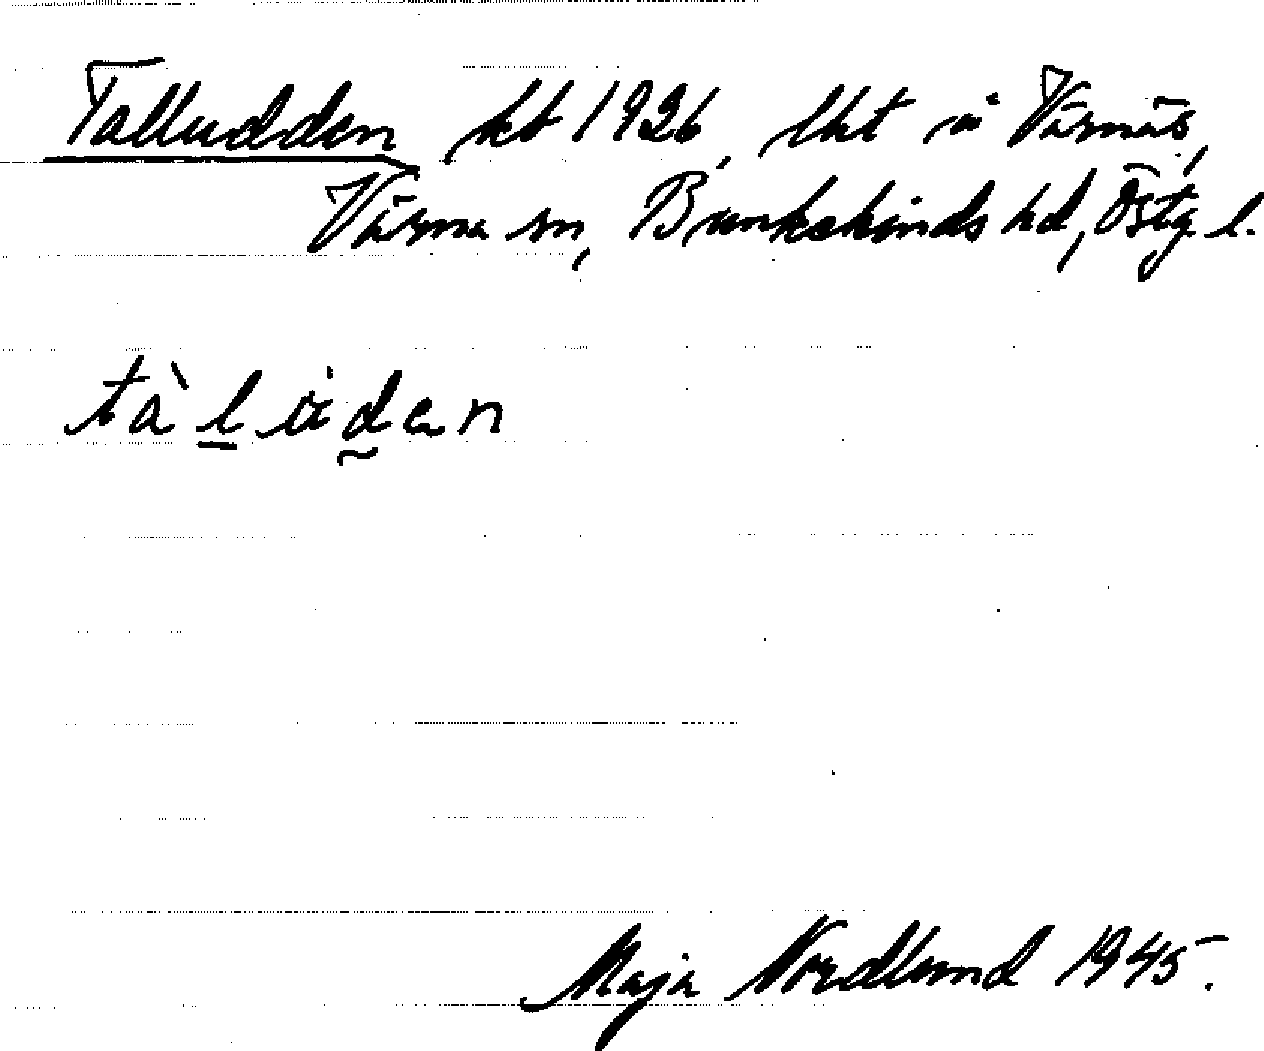 Talludden kt 1926, lht i Vårnäs,
Vårna sn, Bankekinds hd, Östg. l.
tàlu̇den
Maja Nordlund 1945.